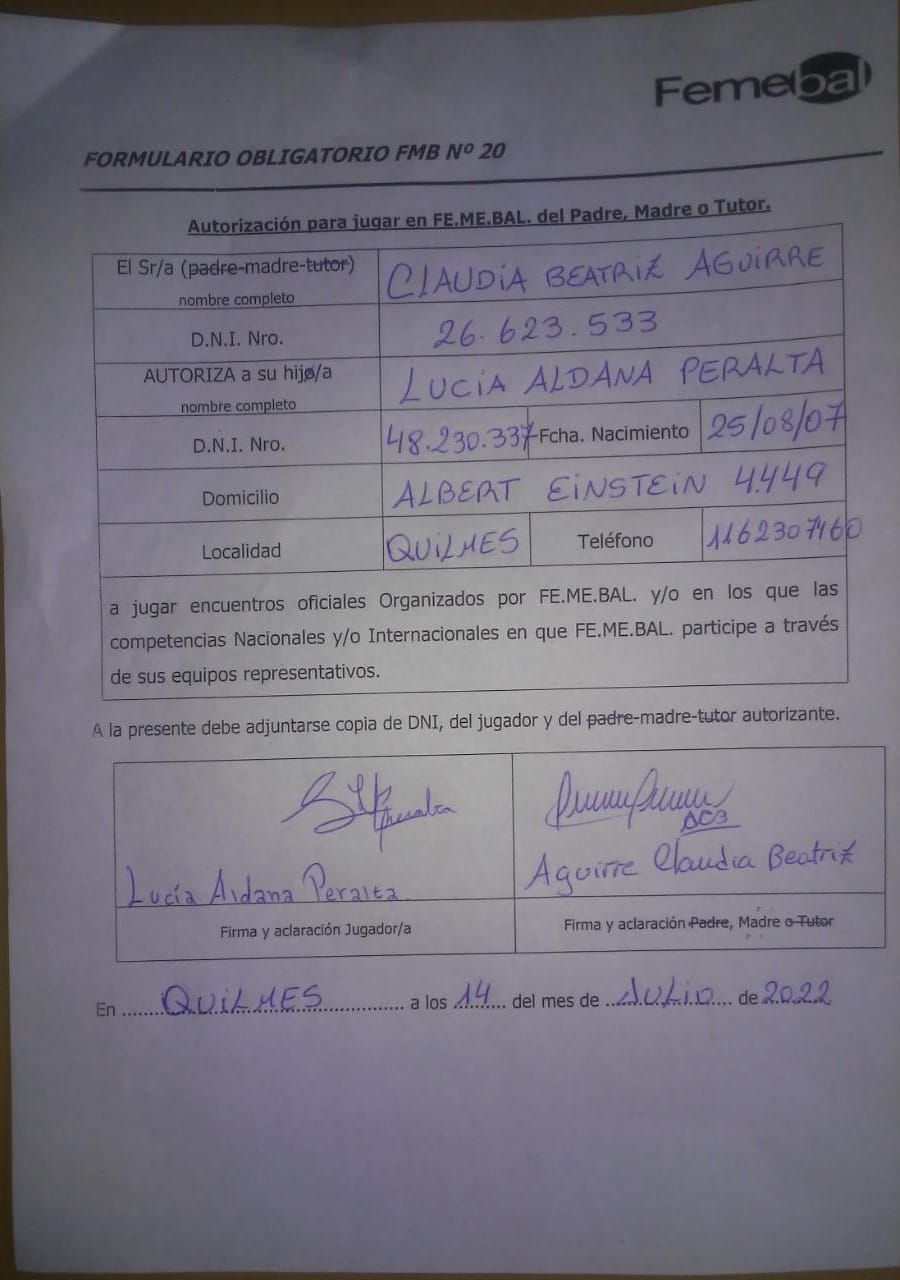 Femebal
FORMULARIO OBLIGATORIO FMB Nº 20
Autorización para jugar en FE.ME.BAL. del Padre, Madre o Tutor.
El Sr/a (padre-madre-tutor)
nombre completo
CLAUDIA BEATRIZ AGUIRRE
D.N.I. Nro.
26.623.533
AUTORIZA a su hijo/a
nombre completo
LUCÍA ALDANA PERALTA
D.N.I. Nro.
48.230.337
Fcha. Nacimiento
25/08/07
Domicilio
ALBERT EINSTEIN 4449
Localidad
QUILMES
Teléfono
1162307460
a jugar encuentros oficiales Organizados por FE.ME.BAL. y/o en los que las
competencias Nacionales y/o Internacionales en que FE.ME.BAL. participe a través
de sus equipos representativos.
A la presente debe adjuntarse copia de DNI, del jugador y del padre-madre-tutor autorizante.
Peralta
Lucía Aldana Peralta
Aguirre Claudia Beatriz
Firma y aclaración Jugador/a
Firma y aclaración Padre, Madre o Tutor
En ........QUILMES.............. a los 14 del mes de ..JULIO.... de 2022